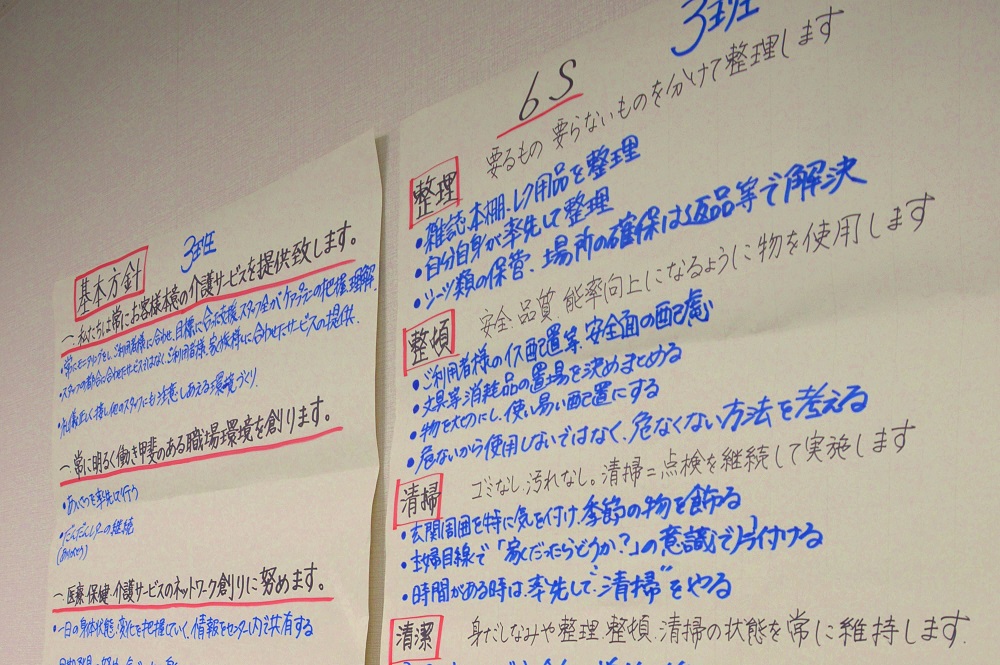 3班
基本方針
一.私たちは常にお客様本意の介護サービスを提供致します。
・常にモニタリングをし、ご利用者様に合わせ、目標に合った支援、スタッフ全員がケアプランの把握、理解.
・スタッフの都合に合わせたサービスではなく、ご利用者様、家族様に合わせたサービスの提供.
・礼儀正しく接し他のスタッフにも注意しあえる環境づくり.
一.常に明るく働き甲斐のある職場環境を創ります。
・あいさつを率先して行う
の継続
(ありがとう)
一.医療.保健.介護サービスのネットワーク創りに努めます。
・一日の身体状態、変化を把握していく、情報をセンター内で共有する
3班
6S
整理 要るもの 要らないものを分けて整理します
・雑誌.本棚.レク用品を整理
・自分自身が率先して整理
・シーツ類の保管、場所の確保は返品等で解決
整頓 安全.品質.能率向上になるように物を使用します
・ご利用者様のイス配置等.安全面の配慮
・文具等消耗品の置場を決めまとめる
・物を大切にし、使い易い配置にする
・危ないから使用しないではなく、危なくない方法を考える
清掃 ゴミなし.汚れなし。清掃=点検を継続して実施します
・玄関周囲を特に気を付け.季節の物を飾る
・主婦目線で「家だったらどうか?」の意識で片付ける
・時間がある時は、率先して"清掃"をやる
清潔 身だしなみや整理.整頓.清掃の状態を常に維持します.